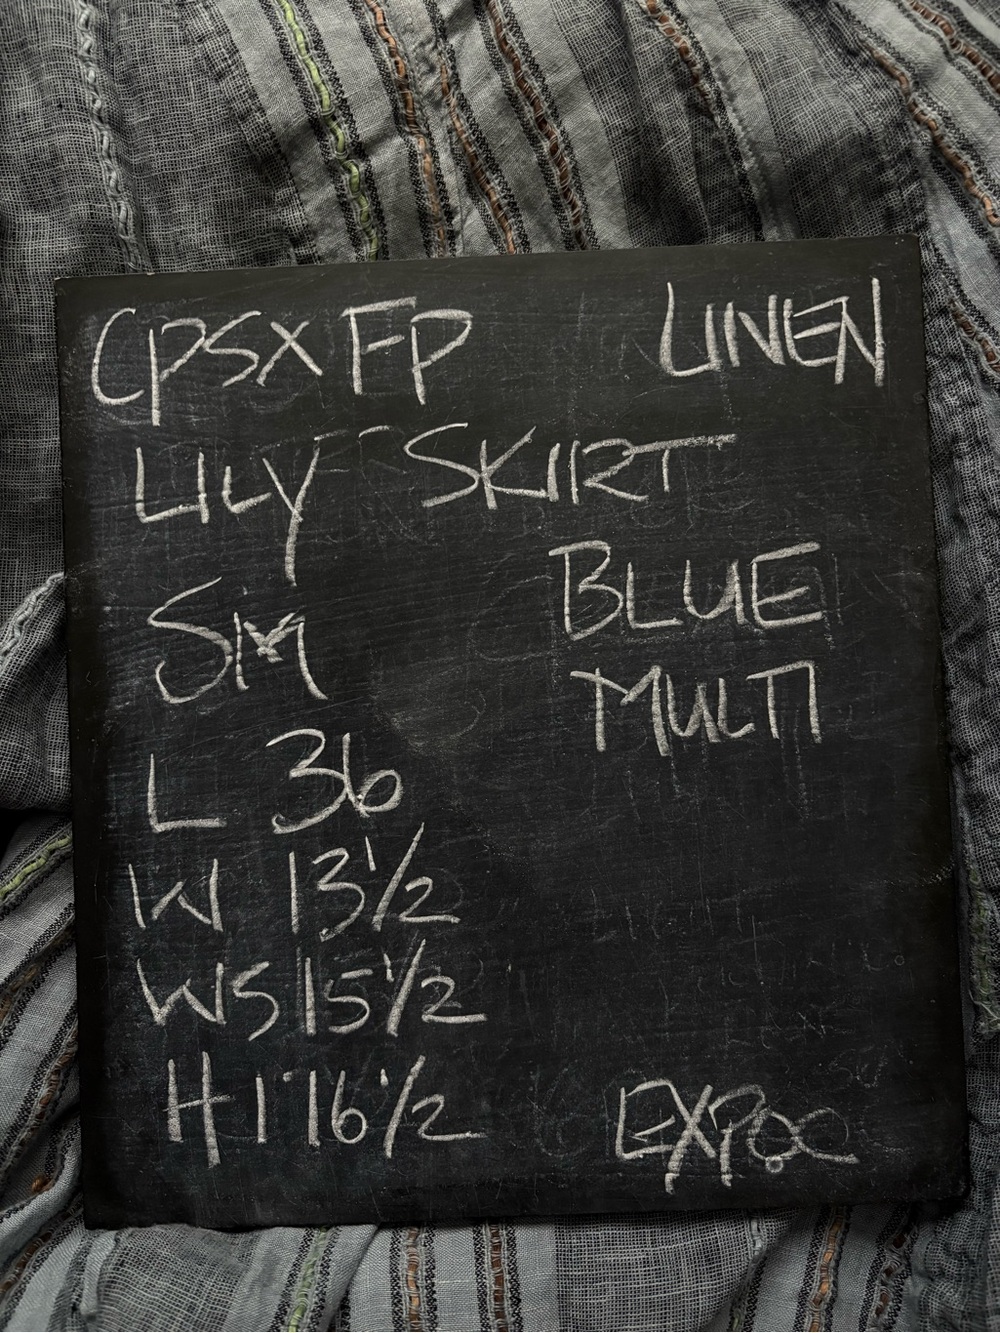 CPSXFP LINEN
LILY SKIRT
BLUE
SM
MULTI
L 36
W 13 1/2
WS 15 1/2
HI 16 1/2